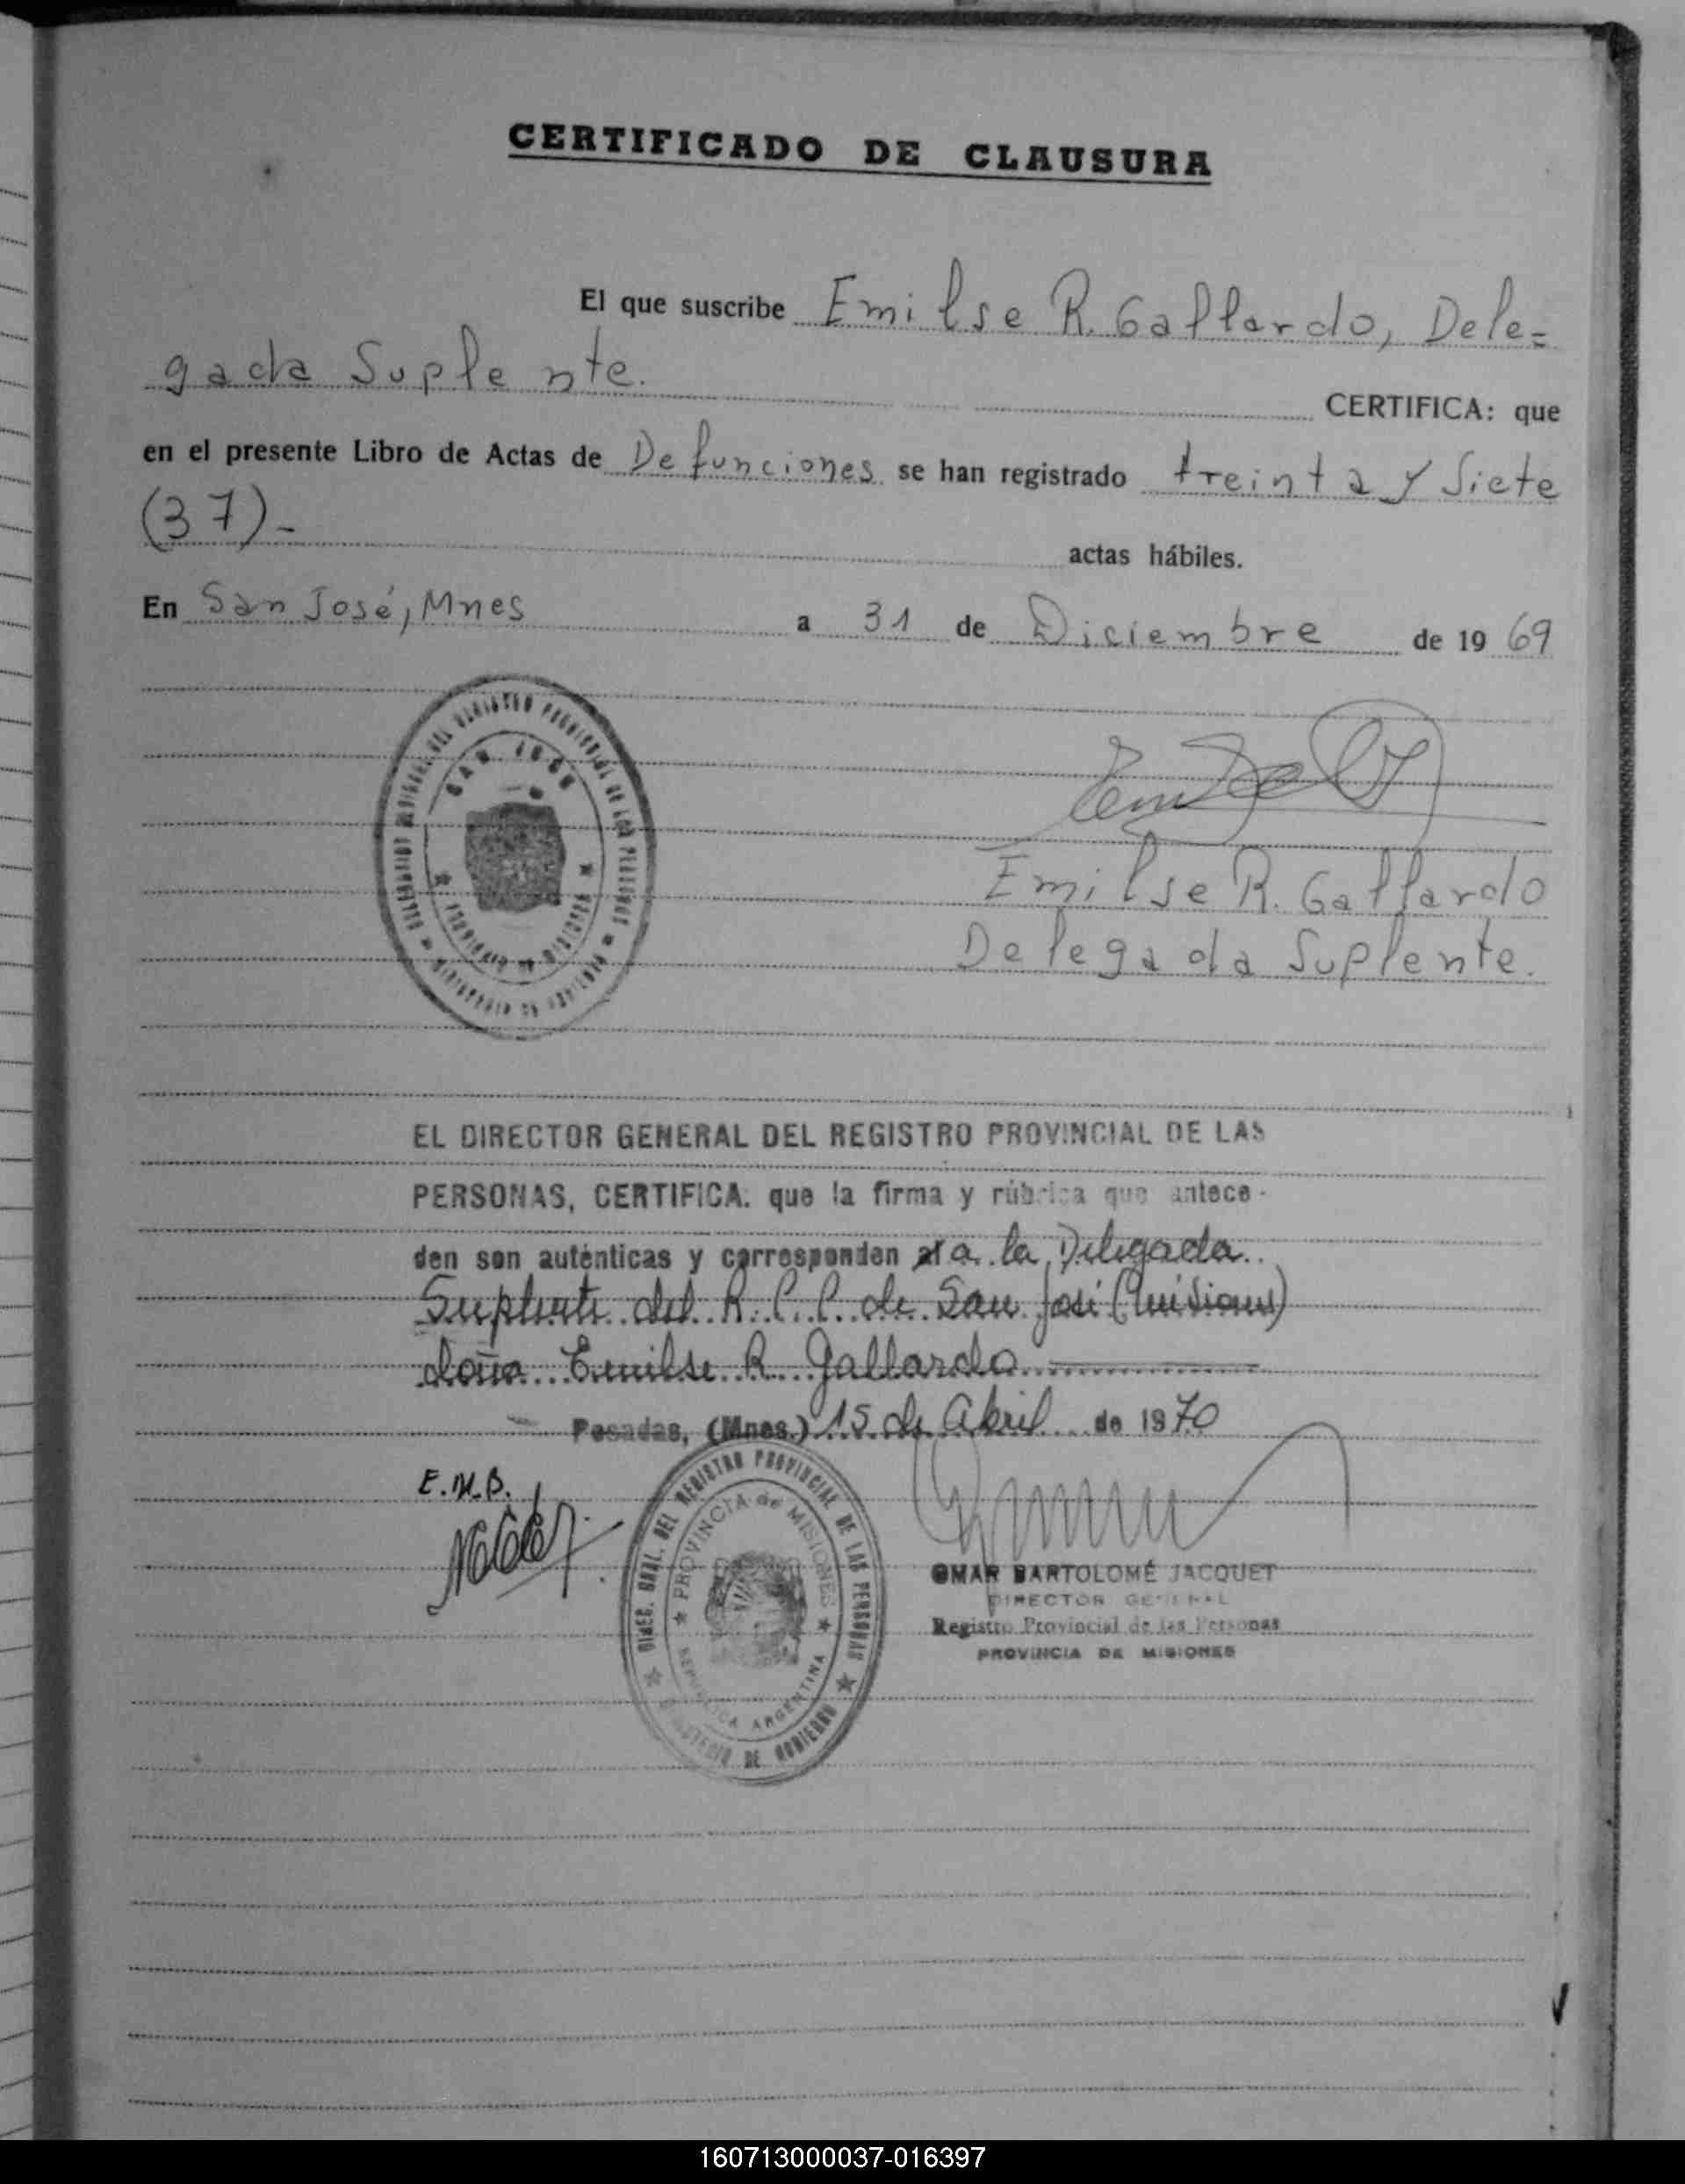 CERTIFICADO DE CLAUSURA
El que suscribe Emilse R. Gallardo, Dele=
gada Suplente.
CERTIFICA: que
en el presente Libro de Actas de Defunciones se han registrado treinta y Siete
(37)-
actas hábiles.
En San José, Mnes a 31 de Diciembre de 19 69
SAN JOSE
Emilse R. Gallardo
Delegada Suplente.
EL DIRECTOR GENERAL DEL REGISTRO PROVINCIAL DE LAS
PERSONAS, CERTIFICA: que la firma y rúbrica que antece-
den son auténticas y corresponden al a la Delegada
Suplente del R. P. P. de San José (Misiones)
doña Emilse R. Gallardo
Posadas, (Mnes.) 15 de Abril de 1970
E.M.B.
DIREC. GRAL. DEL REGISTRO PROVINCIAL DE LAS PERSONAS
PROVINCIA de MISIONES
REPUBLICA ARGENTINA
MINISTERIO DE GOBIERNO
OMAR BARTOLOMÉ JACQUET
DIRECTOR GENERAL
Registro Provincial de las Personas
PROVINCIA DE MISIONES
160713000037-016397